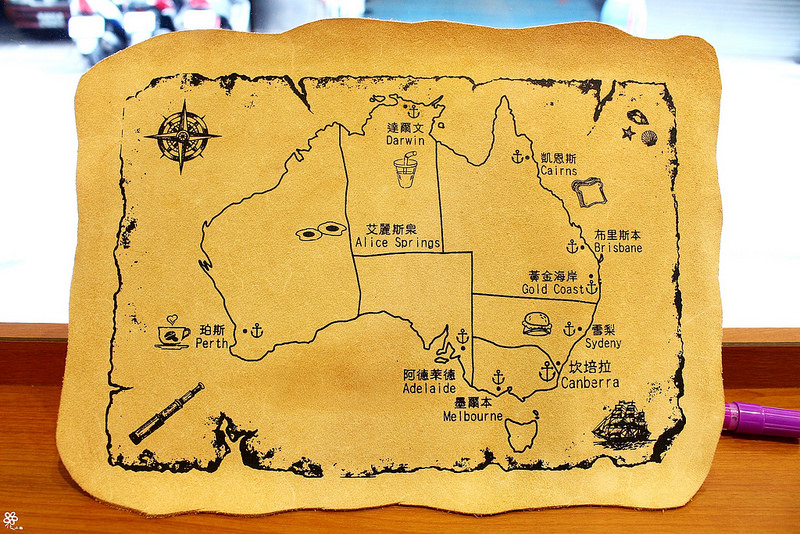 達爾文
Darwin
凱恩斯
Cairns
艾麗斯泉
Alice Springs
布里斯本
Brisbane
黃金海岸
Gold Coast
珀斯
Perth
雪梨
Sydeny
坎培拉
Canberra
阿德萊德
Adelaide
墨爾本
Melbourne